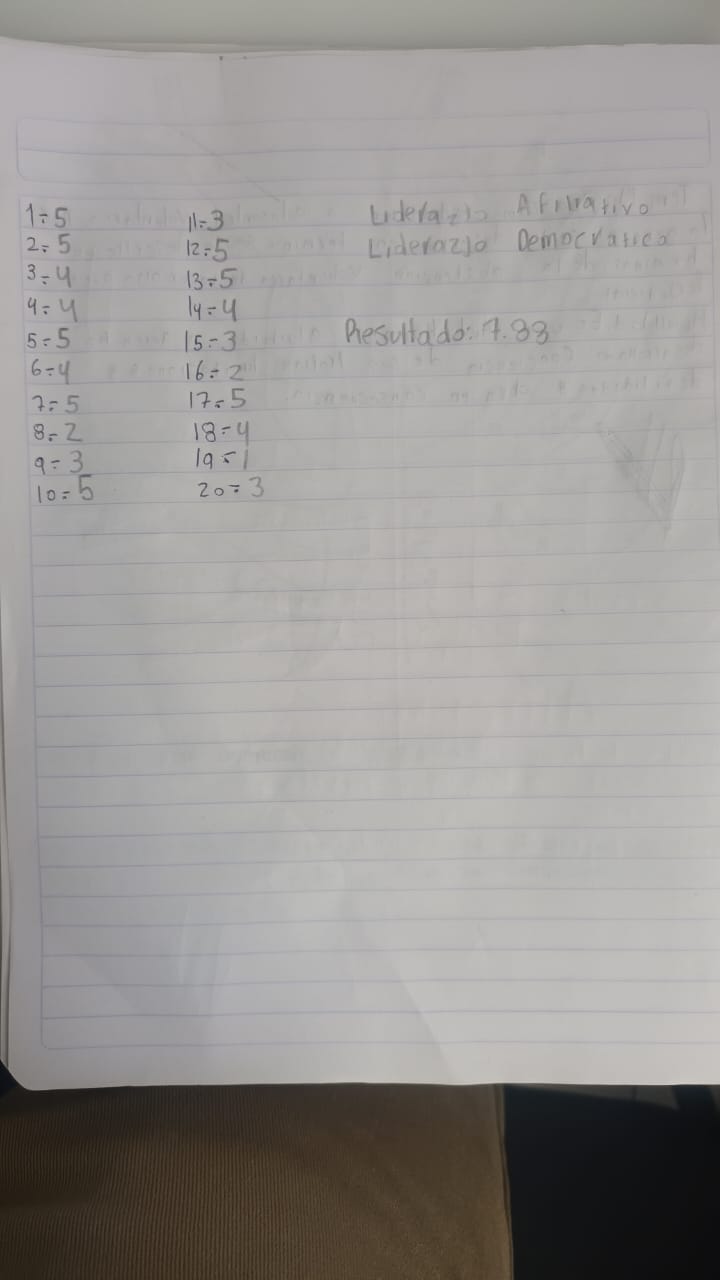 1=5
2=5
3=4
4=4
5=5
6=4
7=5
8=2
9=3
10=5
11=3
12=5
13=5
14=4
15=3
16=2
17=5
18=4
19=1
20=3
Liderazgo Afiliativo
Liderazgo Democratico
Resultado: 7.83